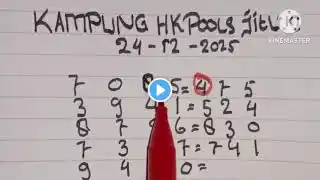 KAMPUNG HKPOOLS JITU
24-12-2025
KINEMASTER
7 0 6 5 = 4 7 5
3 9 4 1 = 5 2 4
8 7 6 = 8 3 0
7 3 7 = 7 4 1
9 4 0 =